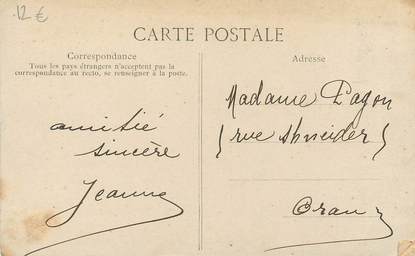 12 €
CARTE POSTALE
Correspondance
Tous les pays étrangers n'acceptent pas la
correspondance au recto, se renseigner à la poste.
amitié
sincère
Jeanne
Adresse
Madame Pagon
(rue Shneider)
Oran